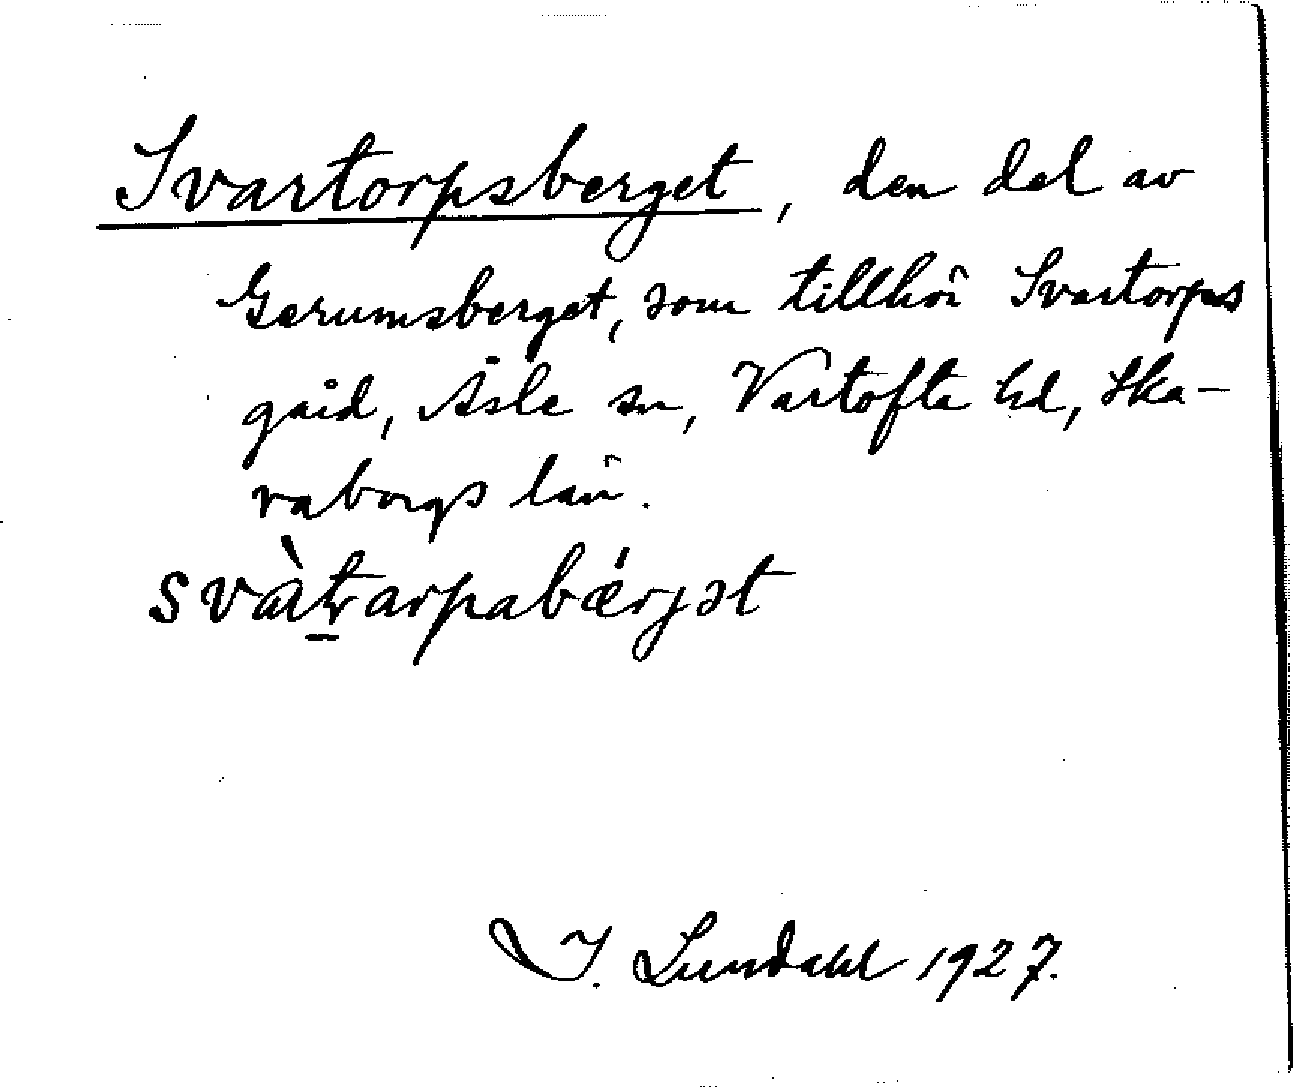 Svartorpsberget, den del av
Gerumsberget, som tillhör Svartorps
gård, Åsle sn, Vartofta hd, Ska-
raborgs län.
I. Lundahl 1927.